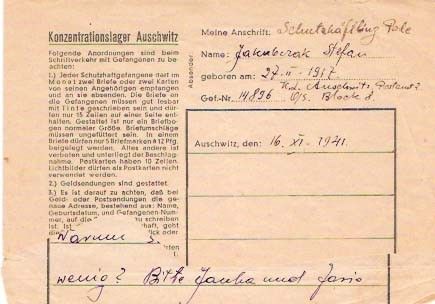 Konzentrationslager Auschwitz
Folgende Anordnungen sind beim
Schriftverkehr mit Gefangenen zu be-
achten:
1.) Jeder Schutzhaftgefangene darf im
Monat zwei Briefe oder zwei Karten
von seinen Angehörigen empfangen
und an sie absenden. Die Briefe an
die Gefangenen müssen gut lesbar
mit Tinte geschrieben sein und dür-
fen nur 15 Zeilen auf einer Seite ent-
halten. Gestattet ist nur ein Briefbo-
gen normaler Größe. Briefumschläge
müssen ungefüttert sein. In einem
Briefe dürfen nur 5 Briefmarken à 12 Pfg.
beigelegt werden. Alles andere ist
verboten und unterliegt der Beschlag-
nahme. Postkarten haben 10 Zeilen.
Lichtbilder dürfen als Postkarten nicht
verwendet werden.
2.) Geldsendungen sind gestattet.
3.) Es ist darauf zu achten, daß bei
Geld- oder Postsendungen die ge-
naue Adresse, bestehend aus: Name,
Geburtsdatum, und Gefangenen-Num-
mer, auf die
zu schreiben
ist. Ist
geht
oder
Absender:
Meine Anschrift: Schutzhäftling Pole
Name: Jakubczak Stefan
geboren am: 27-II-1917
K.L. Auschwitz
Gef.-Nr. 14896 O/S. Block 8.
Auschwitz, den 16. XI. 1941.
Warum
wenig? Bitte Janka und